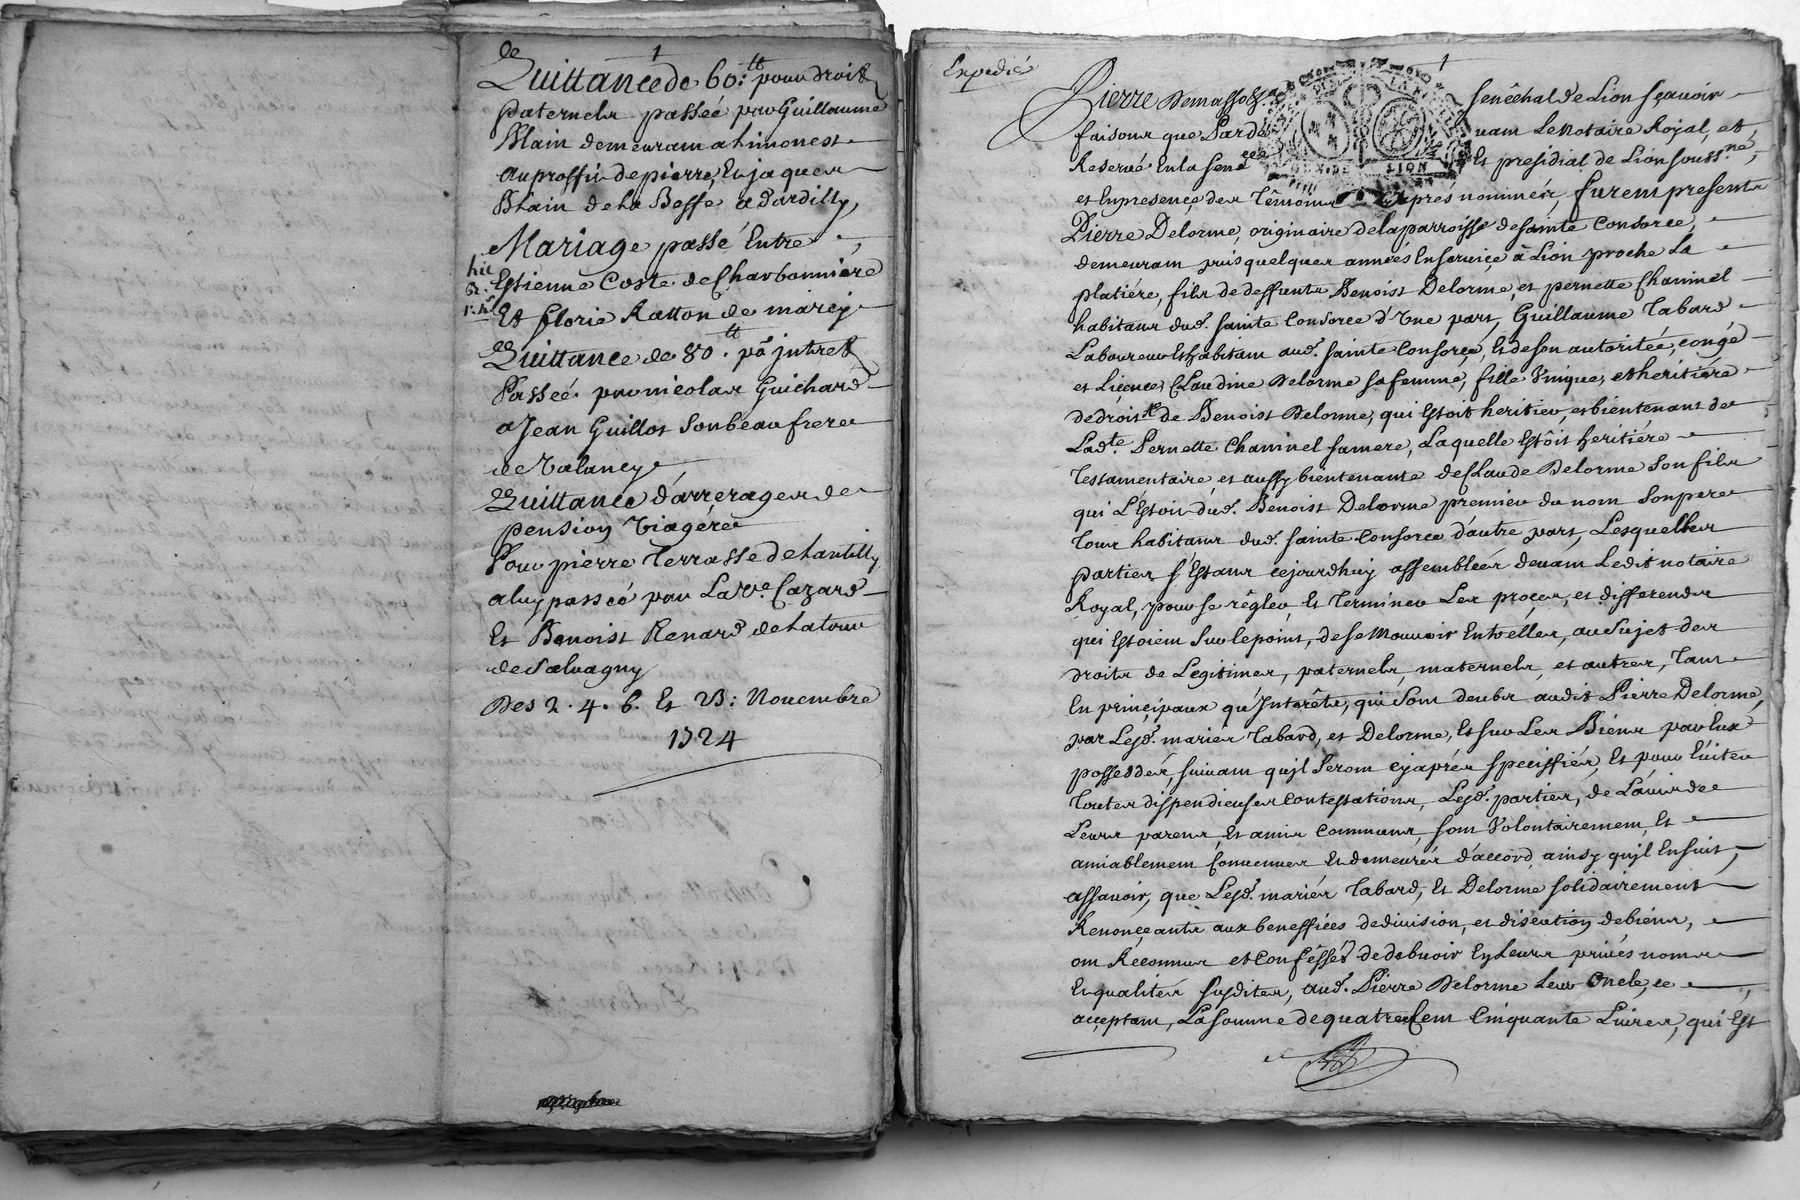 1
de
Quittance de 60:tt pour droits
paternels passée par Guillaume
Blain demeurant a Limonest
au proffit de pierre, Et jaques
Blain de la Beffe a dardilly,
Mariage passé Entre
Estienne Coste de Charbonniere
Et florie Ratton de marcy
Quittance de 80.tt po. jntrets
Passée par nicolas Guichard
a Jean Guillot son beau frere
de Valancy
Quittance d'arrerages de
pension Viagére
Pour pierre Terrasse de Lantilly
a luy passée par La ve. Cazard
Et Benoist Renard de La tour
de Salvagny
Des 2. 4. 6. Et 23: Novembre
1724
Expedié
1
Pierre Demasso Senêchal de Lion sçavoir
faisons que Pard vant Le Notaire Royal, et,
Reservé En la Sene ée Et presidial de Lion souss.né,
et En presence des Témoins cy aprés nommés, furent presents
Pierre Delorme, originaire de la parroisse de sainte Consorce,
demeurant puis quelques années En service à Lion proche La
platiére, fils de deffunts Benoist Delorme, et pernette Chaminel
habitans dud. sainte Consorce d'Une part, Guillaume Tabard
Laboureur Et habitant aud. sainte Consorce, Et de son autoritée, congé
et Licence, Claudine Delorme sa femme, fille Unique, et heritiére
de droit de Benoist Delorme, qui Estoit heritier, et bientenant de
Lad.te Pernette Chaminel sa mere, Laquelle Estôit heritiére
Testamentaire, et aussy bientenante de Claude Delorme son fils
qui L'Estoit dud. Benoist Delorme premier du nom son pere
Tous habitans dud. sainte Consorce d'autre part, Lesquelles
parties s'Estans cejourdhuy assemblées devant Ledit notaire
Royal, pour se règler, Et Terminer Les procez, et differends
qui Estoient Sur le point, de se Mouvoir Entr'elles, au Sujet des
droits de Legitimes, paternels, maternels, et autres, Tant
En principaux qu'Interêts, qui sont deubs audit Pierre Delorme,
par Lesd. mariés Tabard, et Delorme, Et sur Les Biens par Eux
possedés, suivant qu'jl Seront cy aprés specifiés, Et pour Eviter
Toutes dispendieuses contestations, Lesd. parties, de L'avis de
Leurs parens, Et amis communs, sont Volontairement, Et
amiablement Convenues Et demeurés d'accord, ainsy qu'jl Ensuit,
assavoir, que Lesd. mariés Tabard, Et Delorme solidairement
Renonçeants aux beneffices de division, et discution de biens,
ont Reconnus et Confêssés de debvoir En Leurs privés noms
Et qualités susdites, aud. Pierre Delorme Leur Oncle, ce
acceptant, La somme de quatre Cent Cinquante Livres, qui Est